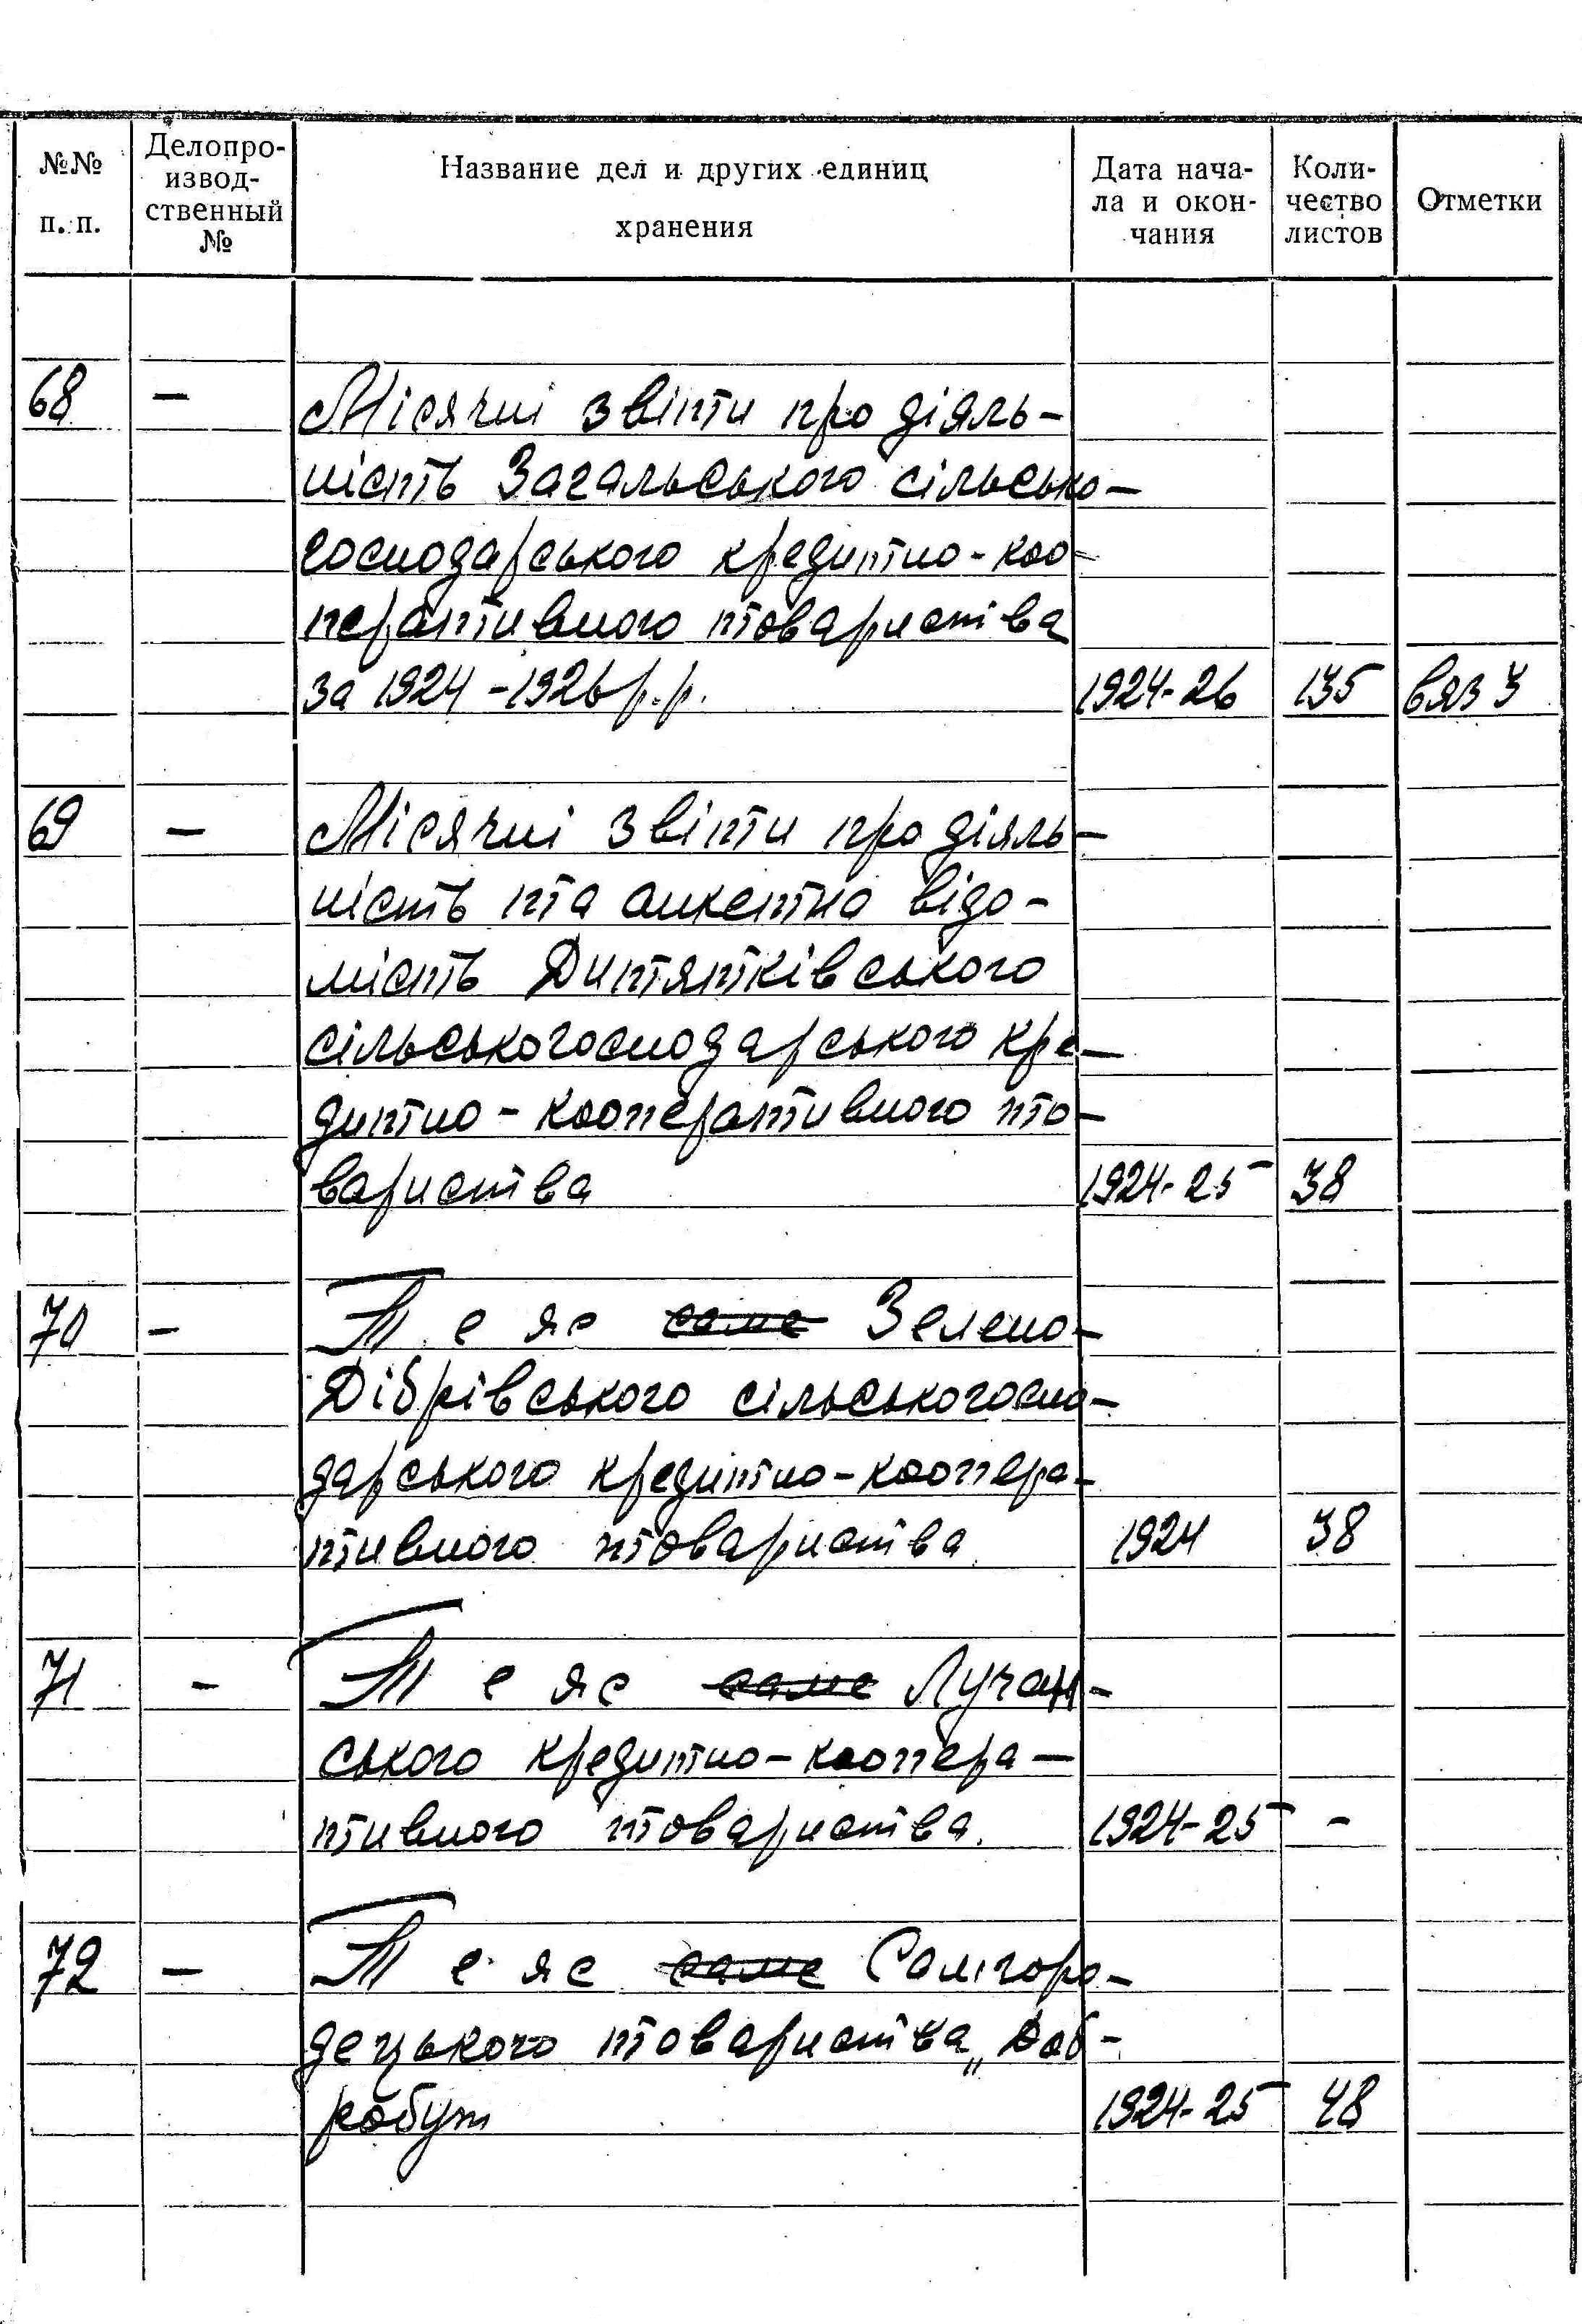 №№ п. п.
Делопро-
извод-
ственный
№
Название дел и других единиц
хранения
Дата нача-
ла и окон-
чания
Коли-
чество
листов
Отметки
68 — Місячні звіти про діяль-
ність Загальського сільсько-
господарського кредитно-коо-
перативного товариства
за 1924-1926 р.р. 1924-26 135 вяз 3
69 — Місячні звіти про діяль-
ність та анкетна відо-
мість Дитятківського
сільськогосподарського кре-
дитно-кооперативного то-
вариства 1924-25 38
70 — Те же саме Зелено-
Дібрівського сільськогоспо-
дарського кредитно-коопера-
тивного товариства 1924 38
71 - Те же саме Лучан-
ського кредитно-коопера-
тивного товариства. 1924-25 -
72 — Те же саме Самгоро-
децького товариства „Доб-
робут 1924-25 48